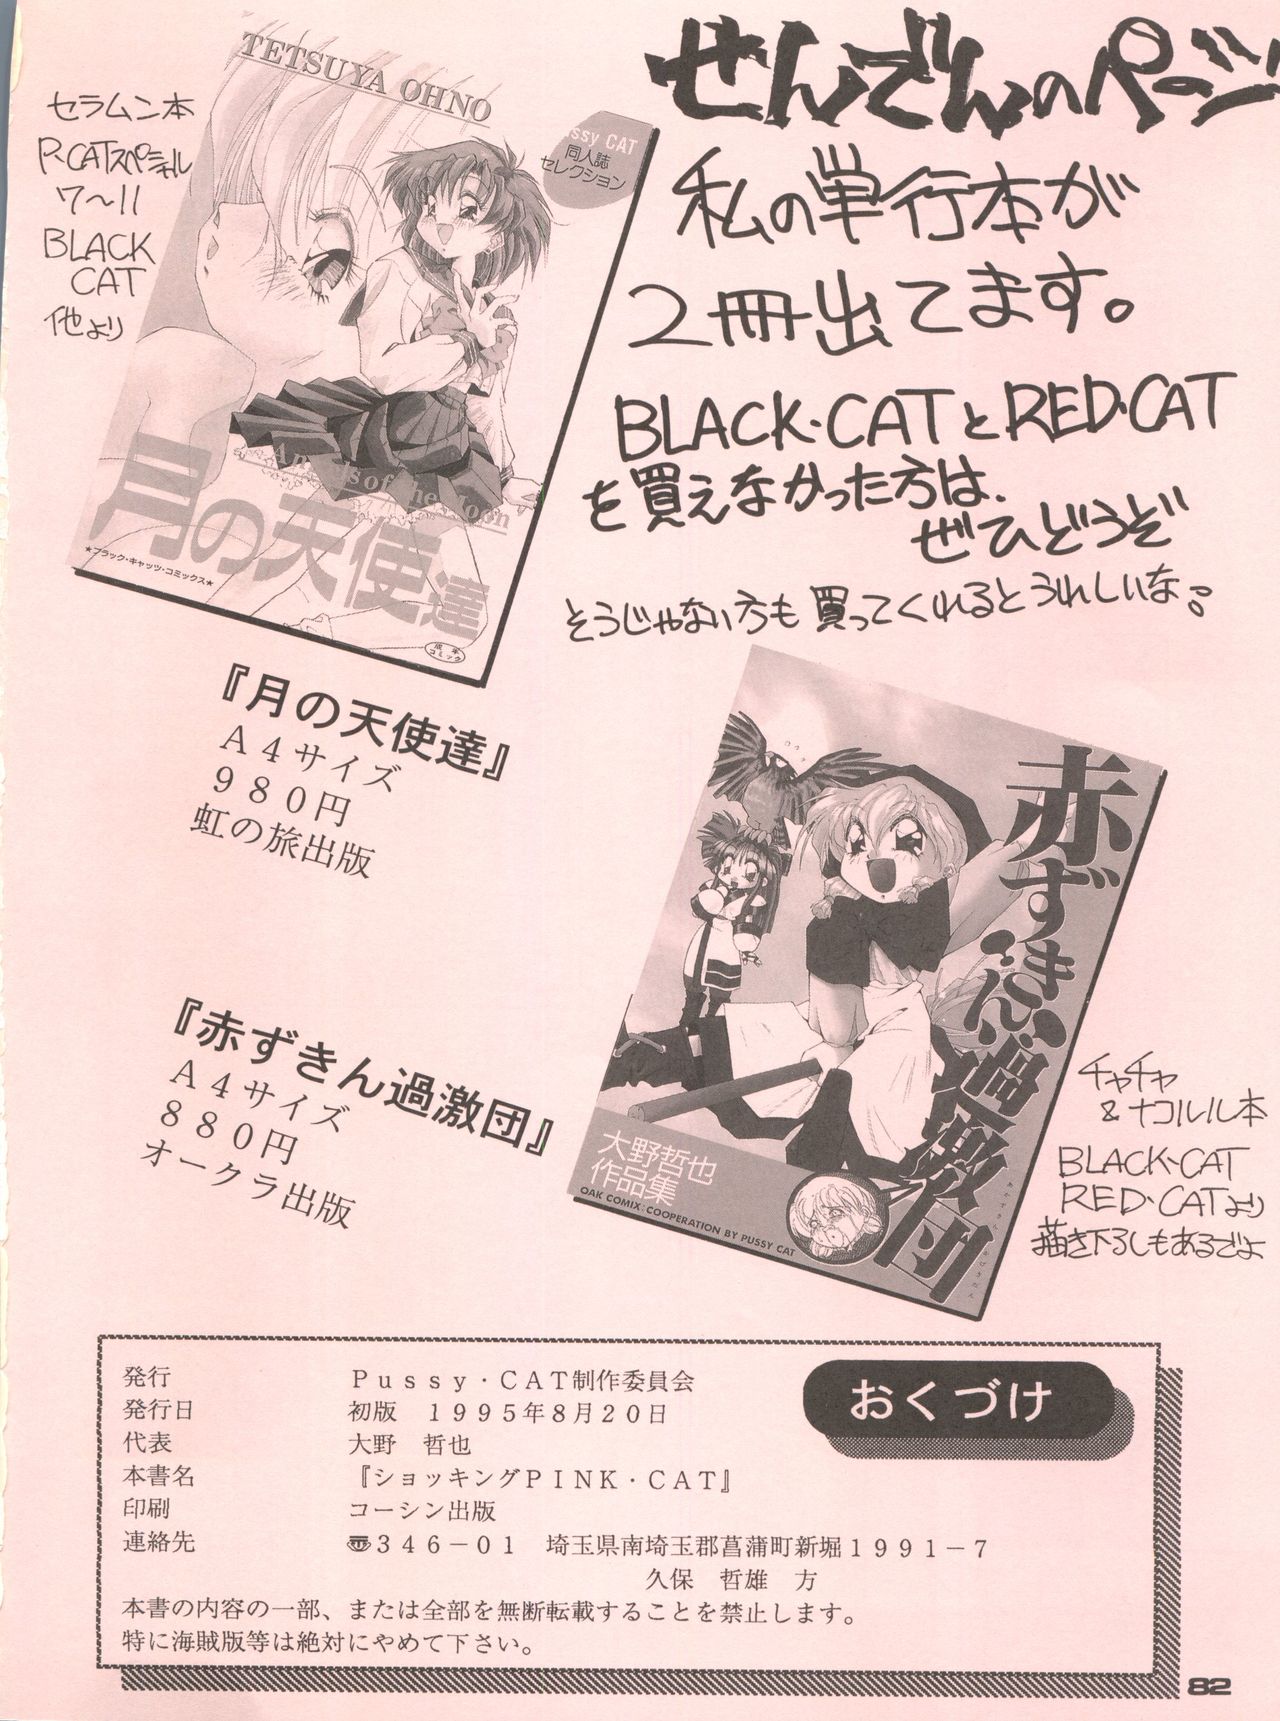 せんでんのページ
私の単行本が
2冊出てます。
BLACK・CATとRED・CAT
を買えなかった方は、
ぜひどうぞ
そうじゃない方も買ってくれるとうれしいな♪
セラムン本
P・CATスペシャル
7〜11
BLACK
CAT
他より
TETSUYA OHNO
ssy CAT
同人誌
セレクション
Angels of the Moon
月の天使達
★ブラック・キャッツ・コミックス★
成年
コミック
『月の天使達』
A4サイズ
980円
虹の旅出版
赤ずきん過激団
あかずきんかげきだん
大野哲也
作品集
OAK COMIX: COOPERATION BY PUSSY CAT
『赤ずきん過激団』
A4サイズ
880円
オークラ出版
チャチャ
&ナコルル本
BLACK・CAT
RED・CATより
描き下ろしもあるでよ
おくづけ
発行 Pussy・CAT制作委員会
発行日 初版 1995年8月20日
代表 大野 哲也
本書名 『ショッキングPINK・CAT』
印刷 コーシン出版
連絡先 〠346−01 埼玉県南埼玉郡菖蒲町新堀1991−7
久保 哲雄 方
本書の内容の一部、または全部を無断転載することを禁止します。
特に海賊版等は絶対にやめて下さい。
82